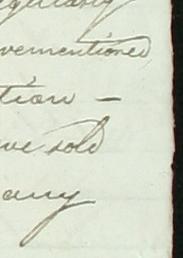 vementioned
tion —
ve sold
any